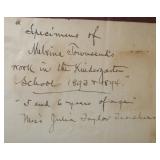 "Specimens of
Melvina Townsend's
work in the Kindergarten
School - 1893 & 1894."
"5 and 6 years of age"
Miss Julia Taylor Teacher